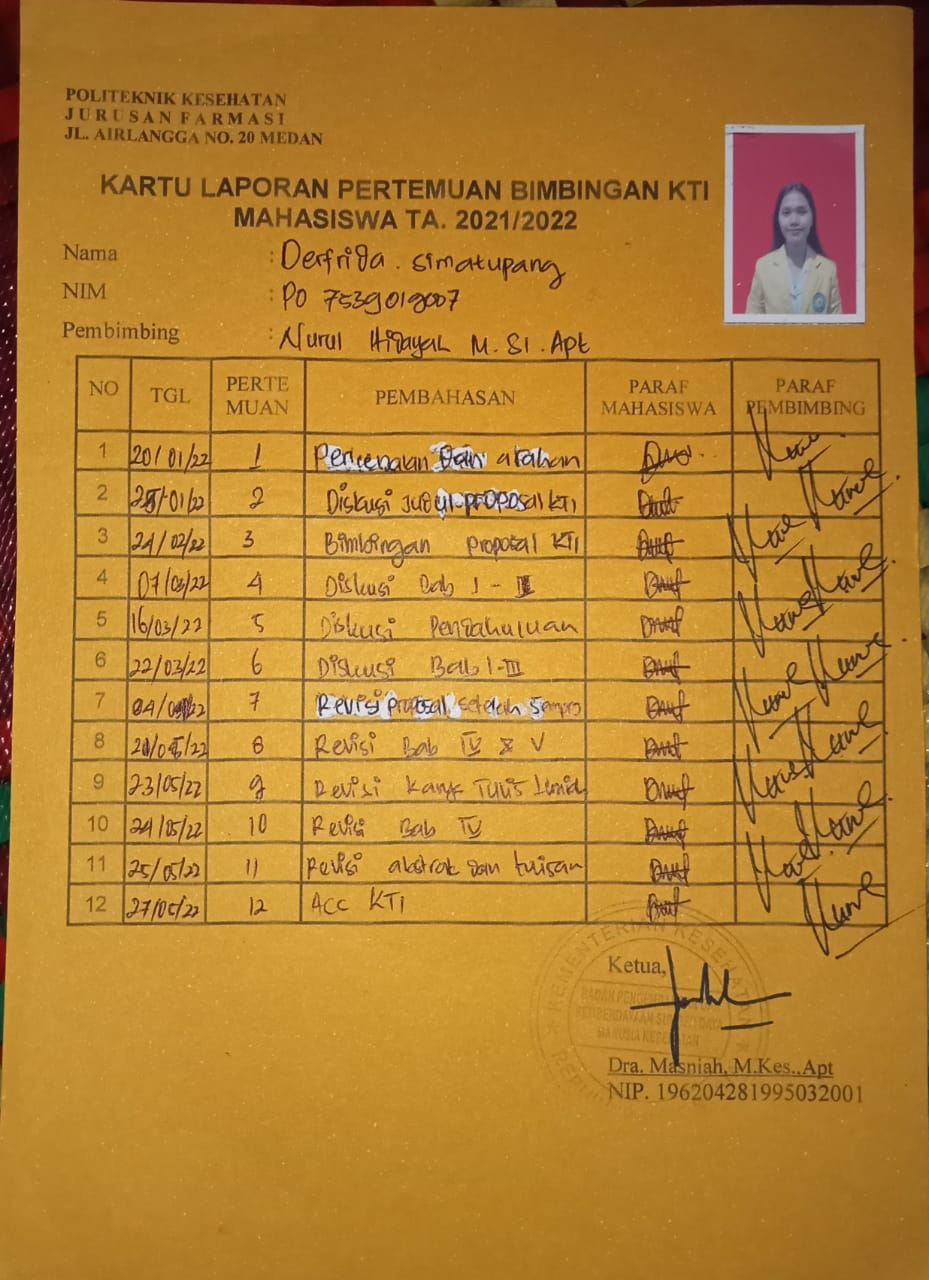 POLITEKNIK KESEHATAN
JURUSAN FARMASI
JL. AIRLANGGA NO. 20 MEDAN
KARTU LAPORAN PERTEMUAN BIMBINGAN KTI
MAHASISWA TA. 2021/2022
Nama : Derfrida. Simatupang
NIM : PO 7539019007
Pembimbing : Nurul Hidayah M.Si.Apt
NO TGL PERTE MUAN PEMBAHASAN PARAF MAHASISWA PARAF PEMBIMBING
1 20/01/22 1 Perkenalan Dan arahan
2 25/01/22 2 Diskusi Judul proposal KTI
3 24/02/22 3 Bimbingan proposal KTI
4 07/03/22 4 Diskusi Bab I - III
5 16/03/22 5 Diskusi Pendahuluan
6 22/03/22 6 Diskusi Bab I-III
7 7 Revisi proposal setelah Sempro
8 8 Revisi Bab IV & V
9 23/05/22 9 Revisi Karya Tulis Ilmiah
10 24/05/22 10 Revisi Bab IV
11 25/05/22 11 Revisi abstrak dan tulisan
12 27/05/22 12 Acc KTI
Ketua,
KEMENTERIAN KESEHATAN
Dra. Masniah, M.Kes.,Apt
NIP. 196204281995032001